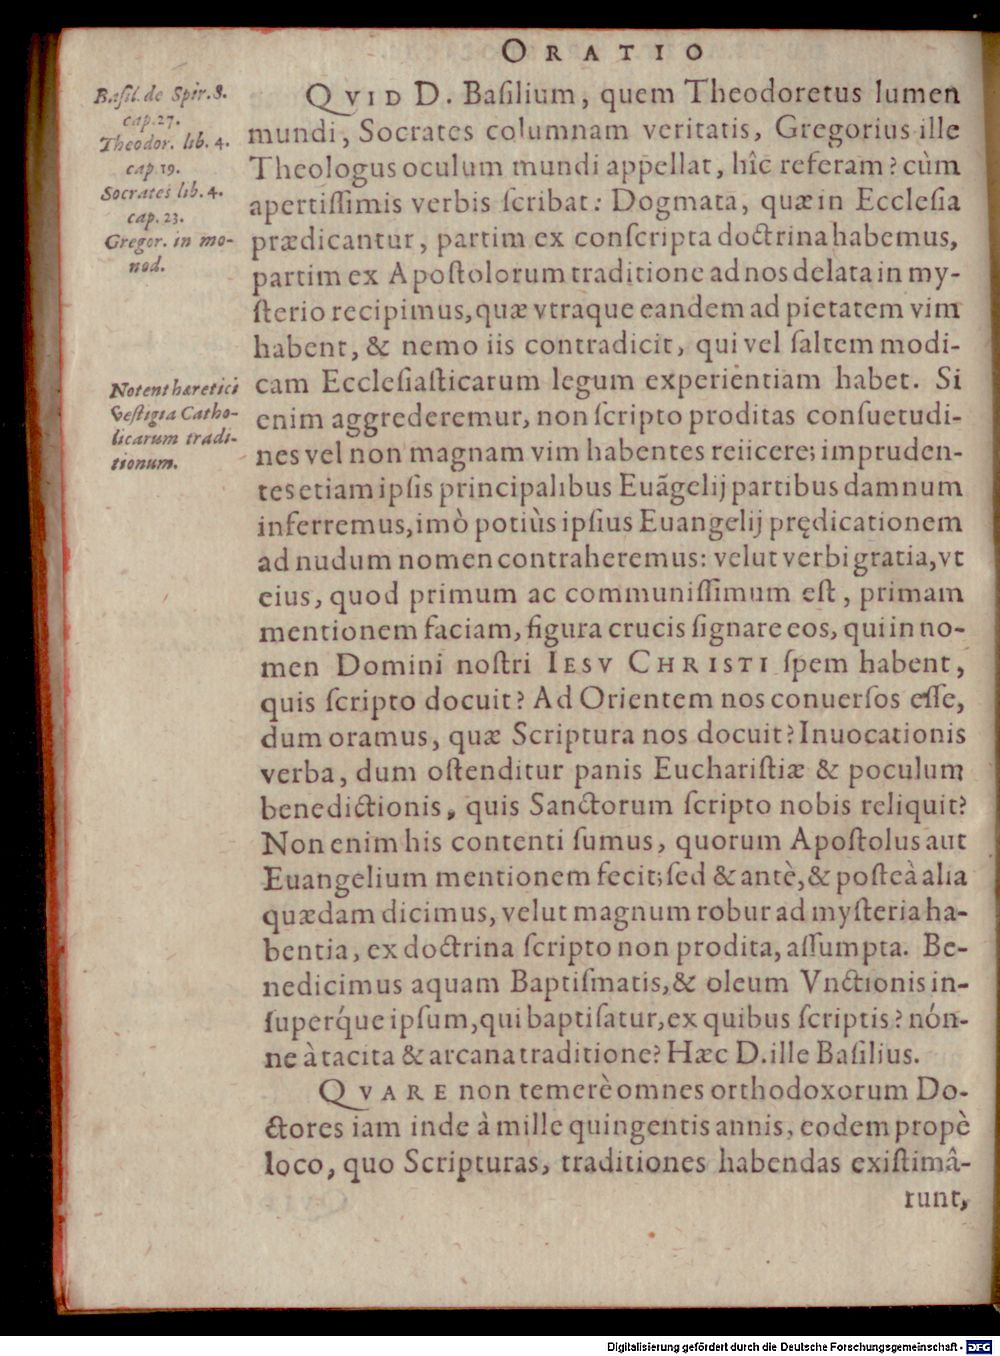 ORATIO
Basil. de Spir. S.
cap. 27.
Theodor. lib. 4.
cap. 19.
Socrates lib. 4.
cap. 23.
Gregor. in mo-
nod.
QVID D. Baſilium, quem Theodoretus lumen
mundi, Socrates columnam veritatis, Gregorius ille
Theologus oculum mundi appellat, hîc referam? cùm
apertiſſimis verbis ſcribat: Dogmata, quæ in Eccleſia
prædicantur, partim ex conſcripta doctrina habemus,
partim ex Apoſtolorum traditione ad nos delata in my-
ſterio recipimus, quæ vtraque eandem ad pietatem vim
habent, & nemo iis contradicit, qui vel ſaltem modi-
Notent hæretici
veſtigia Catho-
licarum tradi-
tionum.
cam Eccleſiaſticarum legum experientiam habet. Si
enim aggrederemur, non ſcripto proditas conſuetudi-
nes vel non magnam vim habentes reiicere; impruden-
tes etiam ipſis principalibus Euãgelij partibus damnum
inferremus, imò potiùs ipſius Euangelij prędicationem
ad nudum nomen contraheremus: velut verbi gratia, vt
eius, quod primum ac communiſſimum eſt, primam
mentionem faciam, figura crucis ſignare eos, qui in no-
men Domini noſtri IESV CHRISTI ſpem habent,
quis ſcripto docuit? Ad Orientem nos conuerſos eſſe,
dum oramus, quæ Scriptura nos docuit? Inuocationis
verba, dum oſtenditur panis Euchariſtiæ & poculum
benedictionis, quis Sanctorum ſcripto nobis reliquit?
Non enim his contenti ſumus, quorum Apoſtolus aut
Euangelium mentionem fecit; ſed & antè, & poſteà alia
quædam dicimus, velut magnum robur ad myſteria ha-
bentia, ex doctrina ſcripto non prodita, aſſumpta. Be-
nedicimus aquam Baptiſmatis, & oleum Vnctionis in-
ſuperq́ue ipſum, qui baptiſatur, ex quibus ſcriptis? nón-
ne à tacita & arcana traditione? Hæc D. ille Baſilius.
QVARE non temerè omnes orthodoxorum Do-
ctores iam inde à mille quingentis annis, eodem propè
loco, quo Scripturas, traditiones habendas exiſtimâ-
runt,
Digitalisierung gefördert durch die Deutsche Forschungsgemeinschaft - DFG